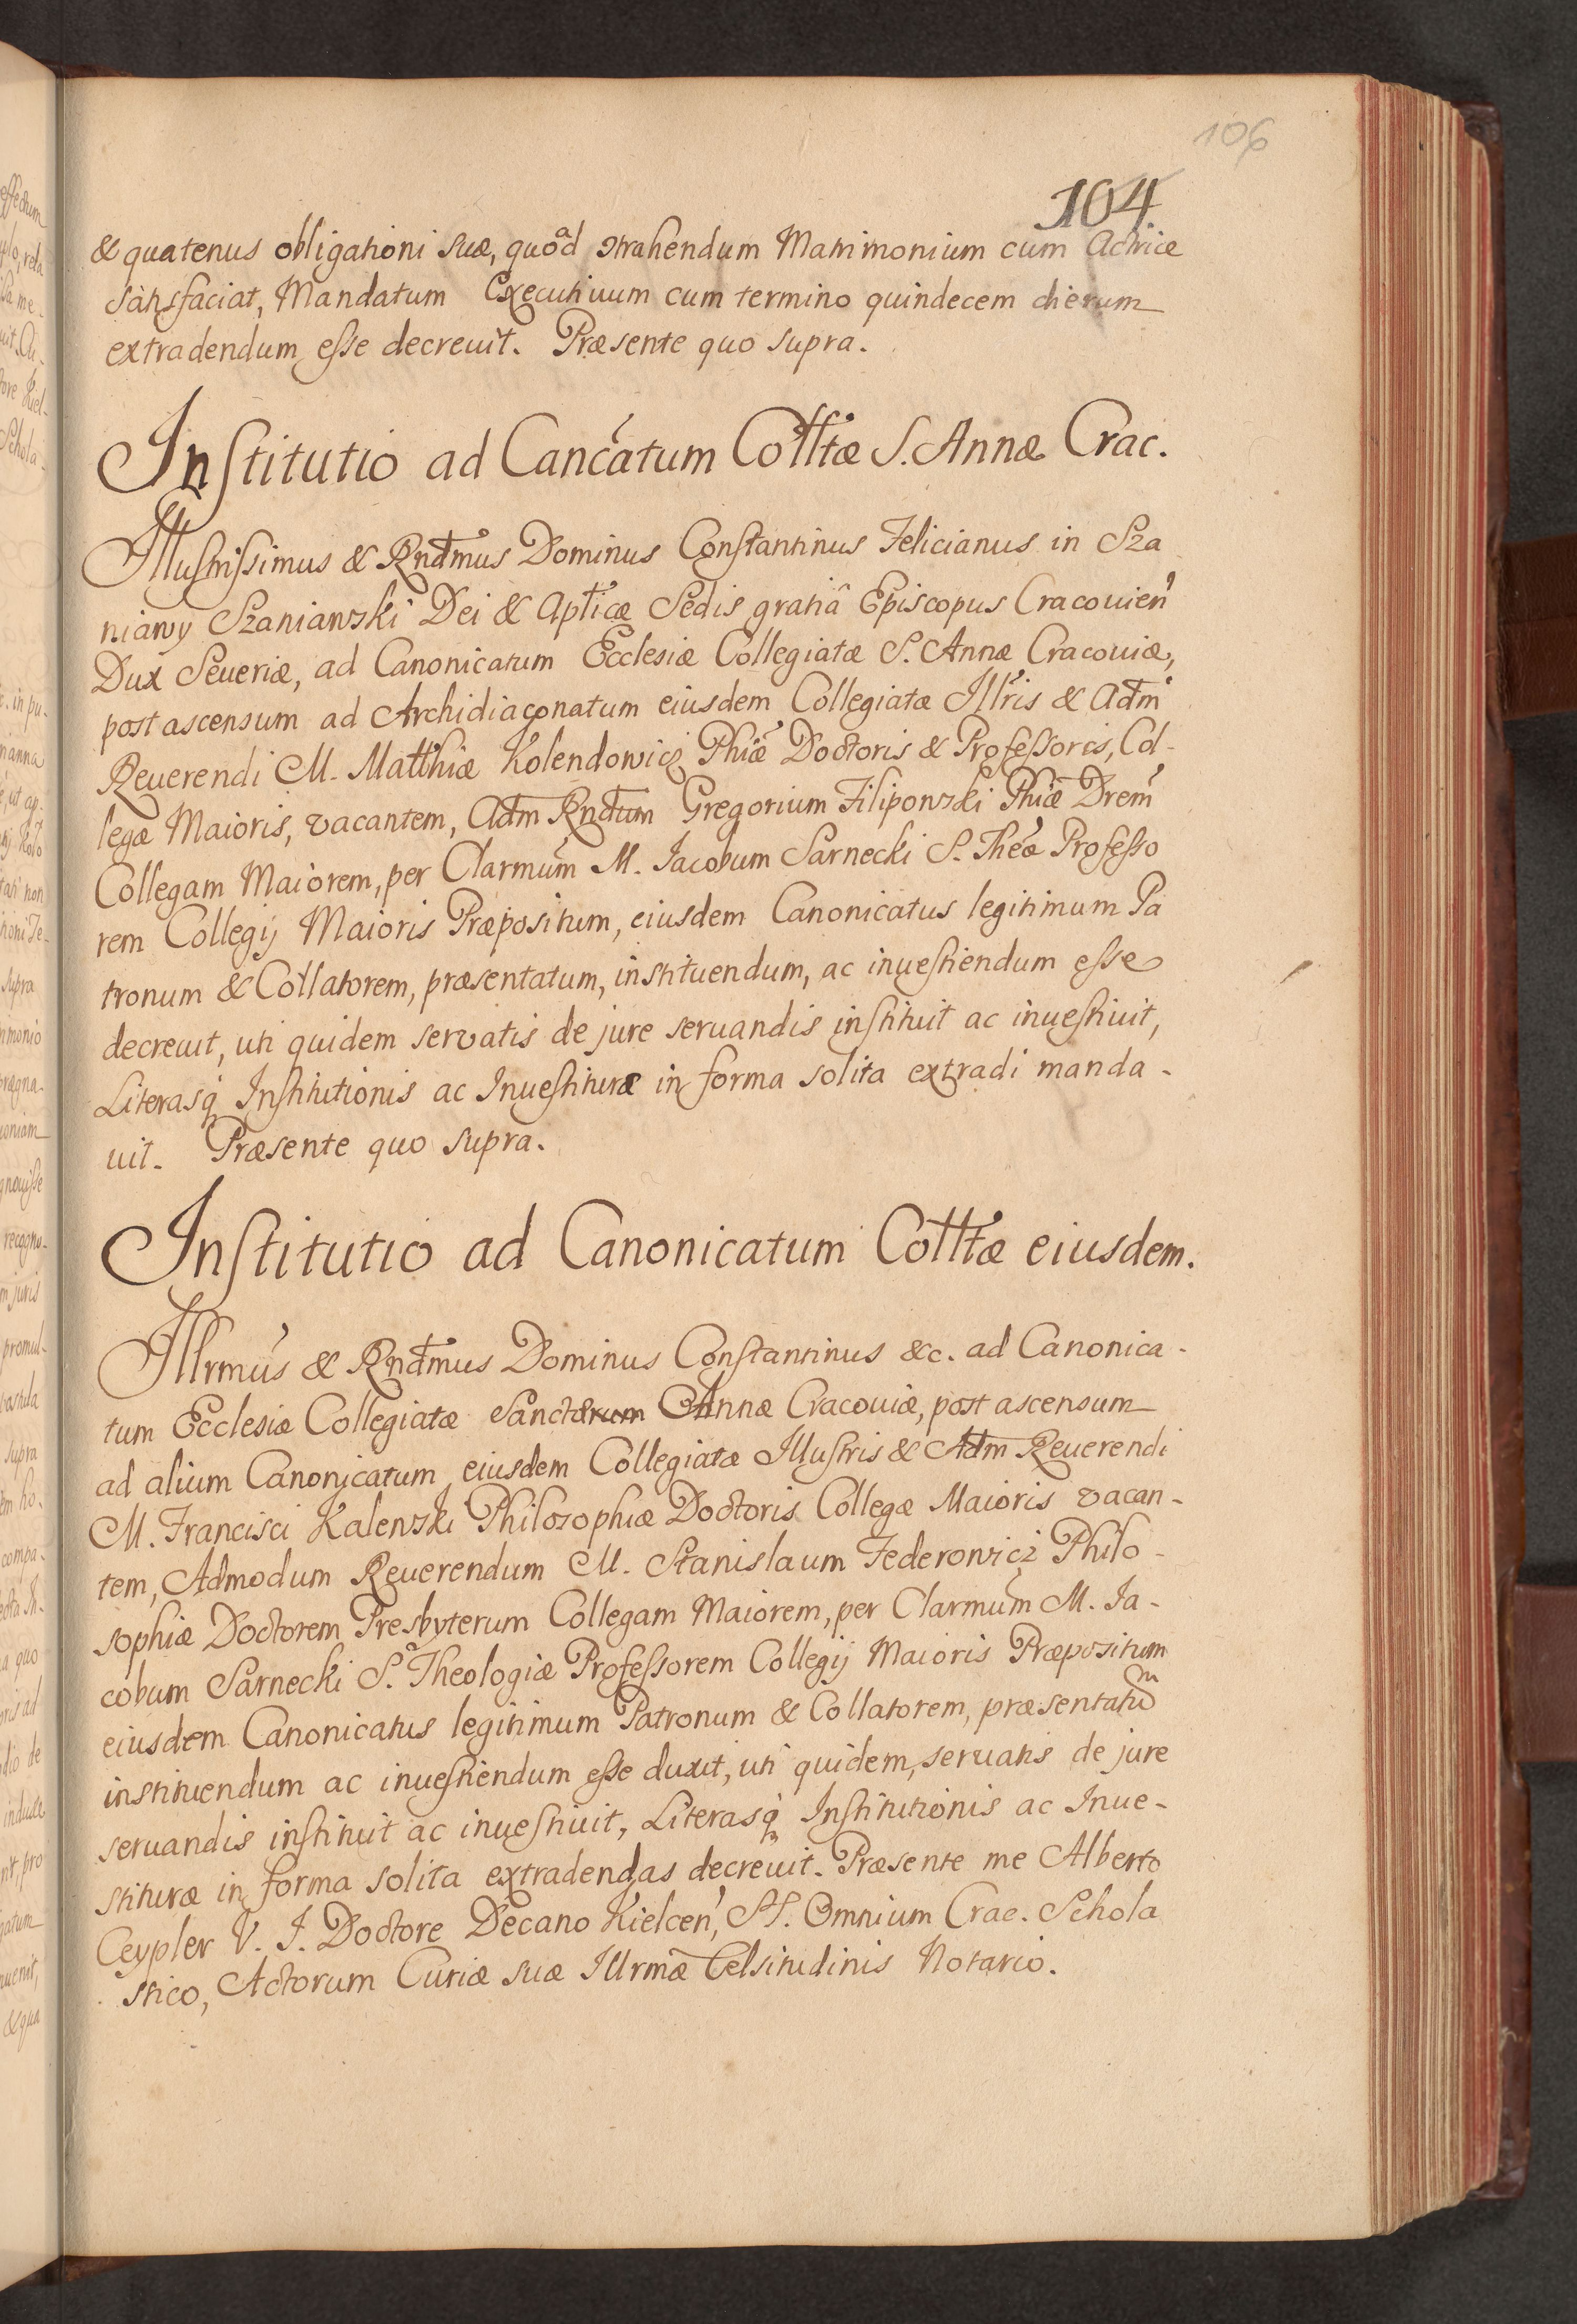 106
104.
& quatenus obligationi suæ, quoad ɔtrahendum Matrimonium cum Actrice
satisfaciat, Mandatum Executiuum cum termino quindecem dierum
extradendum esse decreuit. Præsente quo supra.
Institutio ad Cancatum Colltæ S. Annæ Crac.
Illustrissimus & Rndmus Dominus Constantinus Felicianus in Sza
niawy Szaniawski Dei & Aplicæ Sedis gratiâ Episcopus Cracouien
Dux Seueriæ, ad Canonicatum Ecclesiæ Collegiatæ S. Annæ Cracouiæ,
post ascensum ad Archidiaconatum eiusdem Collegiatæ Illris & Adm
Reuerendi M. Matthiæ Kolendowicz Phiæ Doctoris & Professoris, Col-
legæ Maioris, vacantem, Adm Rndum Gregorium Filipowski Phiæ Drem
Collegam Maiorem, per Clarmum M. Iacobum Sarnecki S. Theæ Professo
rem Collegij Maioris Præpositum, eiusdem Canonicatus legitimum Pa
tronum & Collatorem, præsentatum, instituendum, ac inuestiendum esse
decreuit, uti quidem servatis de jure seruandis instituit ac inuestiuit,
Literasq Institutionis ac Inuestituræ in forma solita extradi manda-
uit. Præsente quo supra.
Institutio ad Canonicatum Colltæ eiusdem.
Illrmus & Rndmus Dominus Constantinus &c. ad Canonica-
tum Ecclesiæ Collegiatæ Sanctæ Annæ Cracouiæ, post ascensum
ad alium Canonicatum eiusdem Collegiatæ Illustris & Adm Reuerendi
M. Francisci Kalewski Philosophiæ Doctoris Collegæ Maioris vacan-
tem, Admodum Reuerendum M. Stanislaum Federowicz Philo-
sophiæ Doctorem Presbyterum Collegam Maiorem, per Clarmum M. Ia-
cobum Sarnecki S. Theologiæ Professorem Collegij Maioris Præpositum
eiusdem Canonicatus legitimum Patronum & Collatorem, præsentatum
instituendum ac inuestiendum esse duxit, uti quidem, seruatis de jure
seruandis instituit ac inuestiuit, Literasq Institutionis ac Inue-
stituræ in forma solita extradendas decreuit. Præsente me Alberto
Ceypler V. J. Doctore Decano Kielcen, SS. Omnium Crac. Schola
stico, Actorum Curiæ suæ Illrmæ Celsitudinis Notario.